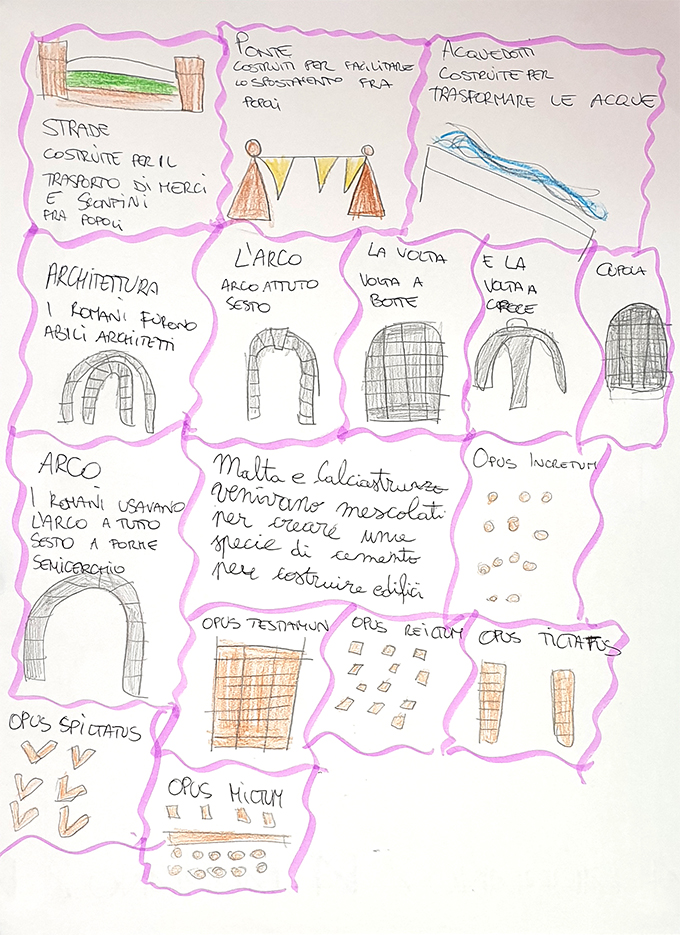 STRADE
COSTRUITE PER IL
TRASPORTO DI MERCI
E SCONFINI
FRA POPOLI
PONTE
COSTRUITI PER FACILITARE
LO SPOSTAMENTO FRA
POPOLI
ACQUEDOTTI
COSTRUITE PER
TRASFORMARE LE ACQUE
ARCHITETTURA
I ROMANI FURONO
ABILI ARCHITETTI
L'ARCO
ARCO ATTUTO
SESTO
LA VOLTA
VOLTA A
BOTTE
E LA
VOLTA A
CUPOLA
ARCO
I ROMANI USAVANO
L'ARCO A TUTTO
SESTO A FORME
SEMICERCHIO
Malta e calciastruzzo
venivano mescolati
per creare une
specie di cemento
per costruire edifici
OPUS INCRETUM
OPUS TESTAMUN
OPUS REICTUM
OPUS TICTATUS
OPUS SPICTATUS
OPUS MICTUM